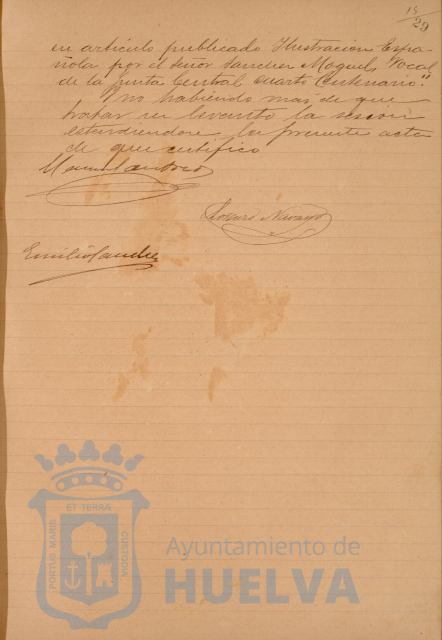 15/29
en artículo publicado Ilustración Espa-
ñola por el señor Sanchez Moguel, Vocal
de la Junta Central cuarto Centenario."
Y no habiendo mas de que
tratar se levantó la sesión
estendiendose la presente acta
de que certifico
Emilio Sanchez
ET TERRÆ
PORTUS MARIS
CUSTODIA
Ayuntamiento de
HUELVA